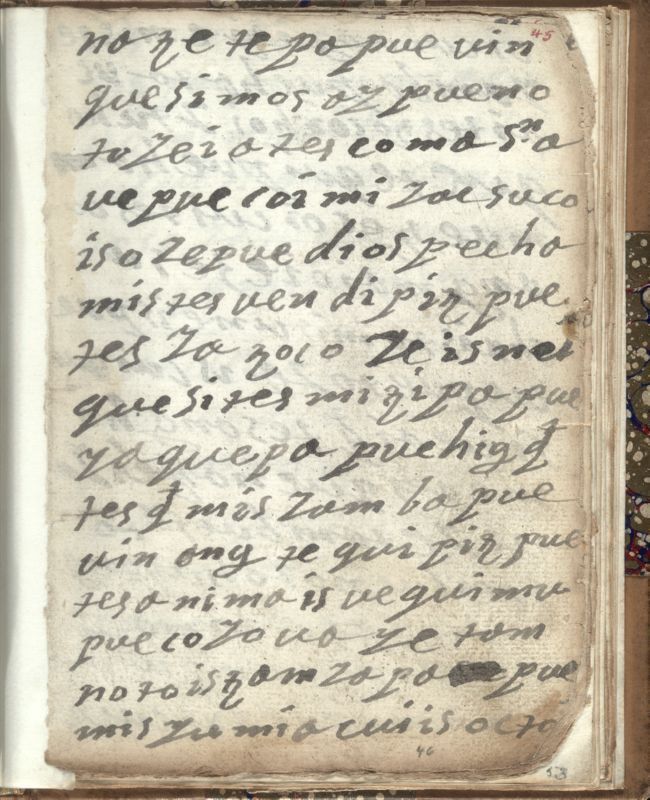 45
na ze te po pue vin
que si mos az pueno
to zei a tes co ma sn a
ve pue coi mi zae suco
is a ze pue dios pecha
mis tes ven di piz pue
tes za zoco ze is nei
que si tes mi zi pa pue
ya que pa pue hig q̃
tes q̃ mis zam ba pue
vin ong te qui piz pue
tes a ni ma is ve qui mu
pue co za va ze tam
no to is zam za pa pue
mis zu mia cui is octo
46
53